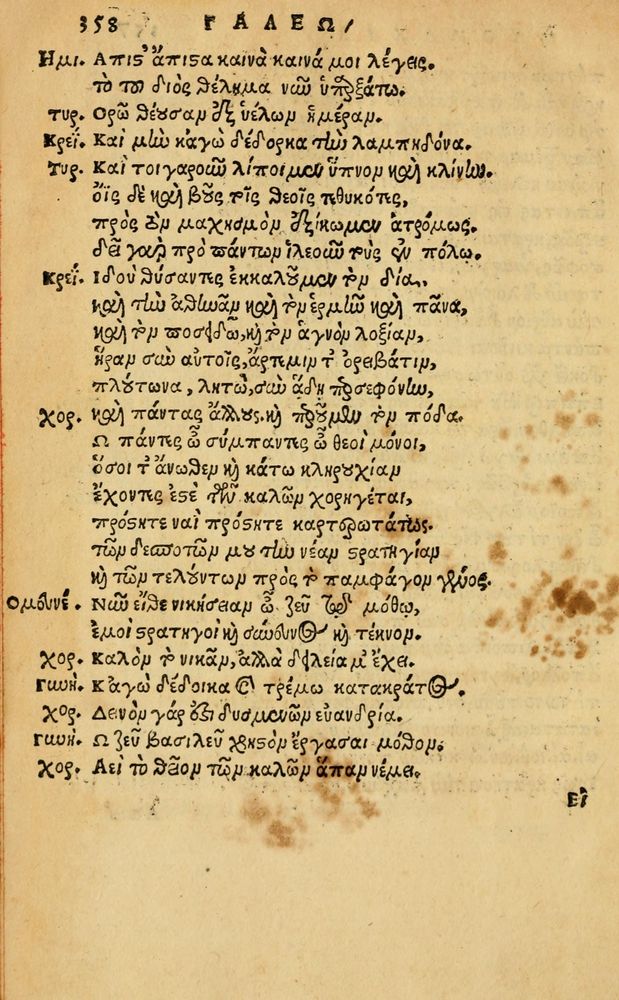 358 ΓΑΛΕΩ/
Ημι. Απιστ' ἄπιστα καινὰ καινά μοι λέγεις.
τὸ τοῦ διὸς θέλημα νῶϊν ὑπηρξάτω.
τυρ. Ορῶ θέουσαν ἐξ ὑέλων ἡμέραν.
Κρεΐ. Καὶ μὴν κἀγὼ δέδορκα τὴν λαμπηδόνα.
Τυρ. Καὶ τοιγαροῦν λίποιμεν ὕπνον καὶ κλίνην.
ὄϊς δὲ καὶ βοῦς τοῖς θεοῖς τεθυκότες,
πρὸς τὸν μαχησμὸν ἐξίκωμεν ἀτρόμως.
δεῖ γὰρ πρὸ πάντων ἵλεων τοὺς ἐν πόλῳ.
Κρεΐ. Ιδοὺ θύσαντες ἐκκαλοῦμεν τὸν δία,
καὶ τὴν ἀθηνᾶν καὶ τὸν ἑρμῆν καὶ πᾶνα,
καὶ τὸν ποσειδῶ, καὶ τὸν ἁγνὸν λοξίαν,
ἥραν σὺν αὐτοῖς, ἄρτεμιν τ' ὀρειβάτιν,
πλούτωνα, λητὼ, σὺν ἅδῃ περσεφόνην,
χορ. καὶ πάντας ἄλλους. καὶ τὸν πόδα.
Ω πάντες ὦ σύμπαντες ὦ θεοὶ μόνοι,
ὅσοι τ' ἄνωθεν καὶ κάτω κληρουχίαν
ἔχοντες ἐστὲ τῶν καλῶν χορηγέται,
πρόσιτε ναὶ πρόσιτε καρτερωτάτως.
τῶν δεσποτῶν μου τὴν νέαν στρατηγίαν
καὶ τῶν τελούντων πρὸς τὸ παμφάγον γένος.
Ομόυνέ. Νῦν εἴθε νικήσειαν ὦ ζεῦ τῷ μόθῳ,
ἐμοὶ στρατηγοὶ καὶ σύνευνος καὶ τέκνον.
χορ. Καλὸν τὸ νικᾶν, ἀλλὰ δειλεία μ' ἔχει.
γωνή. Κἀγὼ δέδοικα καὶ τρέμω κατακράτος.
χο. Δεινὸν γὰρ ἐστι δυσμενῶν εὐανδρία.
γωνή. Ω ζεῦ βασιλεῦ χρηστὸν ἔργασαι μόθον.
χορ. Αεὶ τὸ θεῖον τῶν καλῶν ἅπαν νέμει.
Εἰ